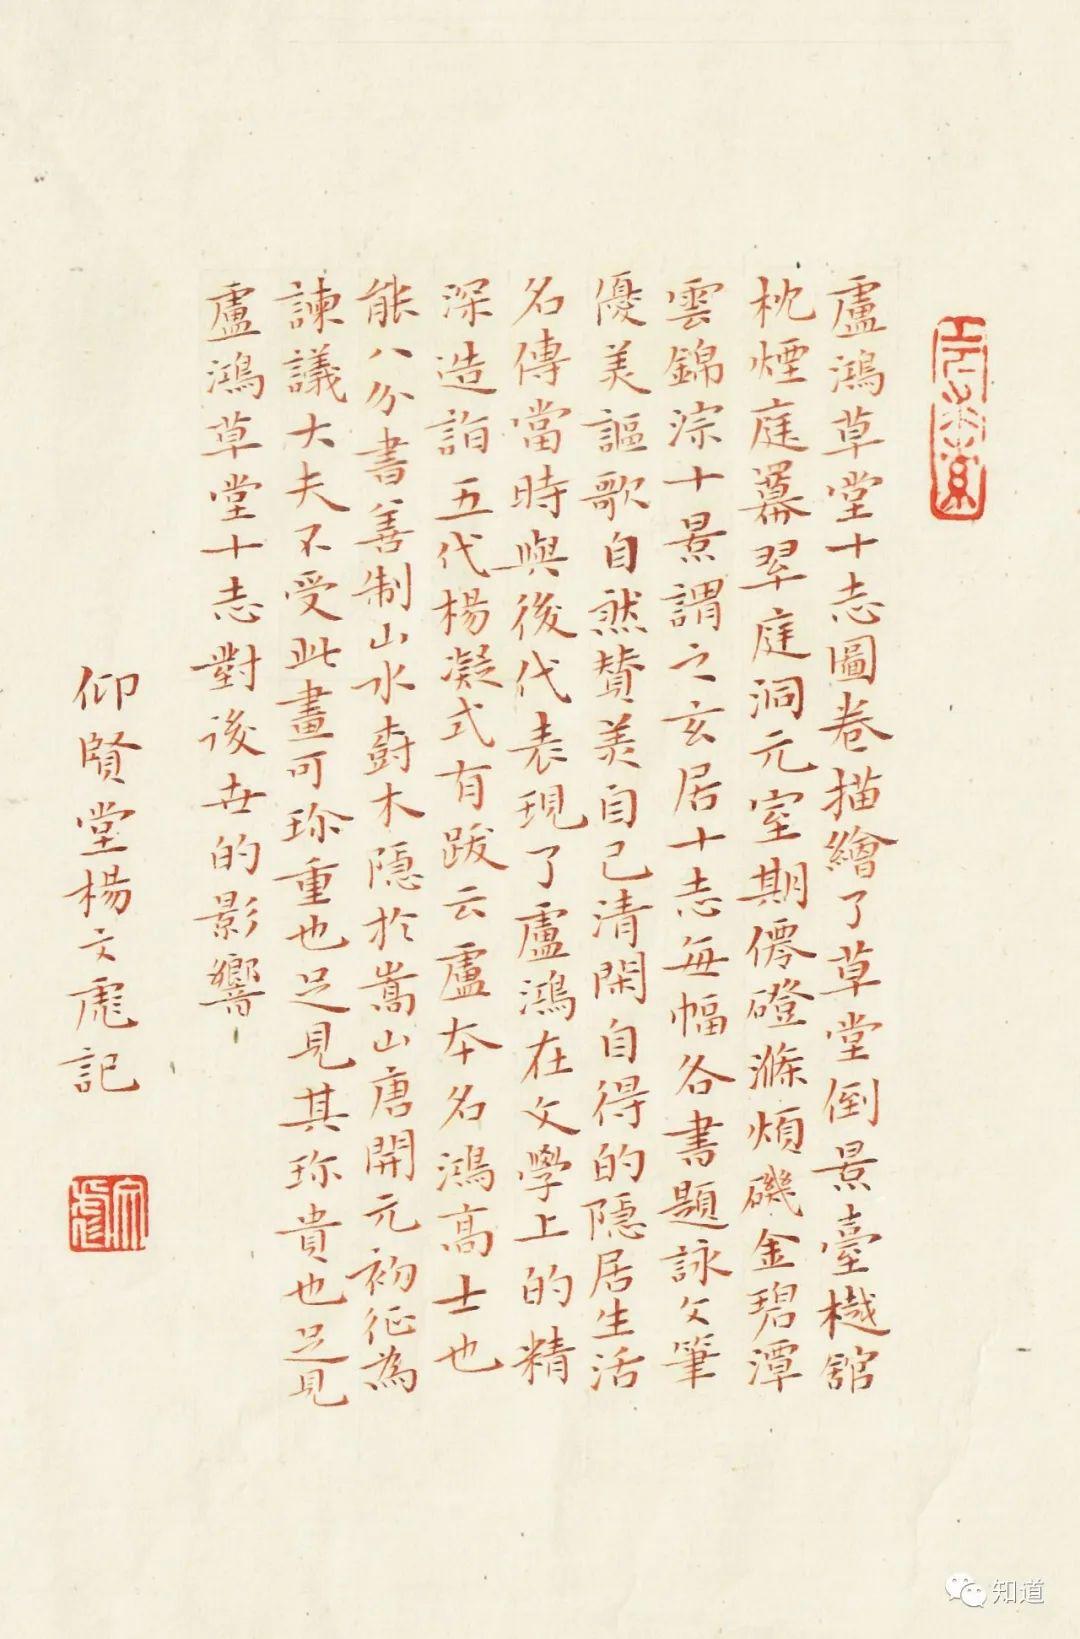 盧鴻草堂十志圖卷描繪了草堂倒景臺樾舘
枕煙庭羃翠庭洞元室期僊磴滌煩磯金碧潭
雲錦淙十景謂之玄居十志每幅各書題詠文筆
優美謳歌自然贊美自己清閑自得的隱居生活
名傳當時與後代表現了盧鴻在文學上的精
深造詣五代楊凝式有跋云盧本名鴻高士也
能八分書善制山水樹木隱於嵩山唐開元初征為
諫議大夫不受此畫可珍重也足見其珍貴也足見
盧鴻草堂十志對後世的影響
仰賢堂楊文彪記
知道